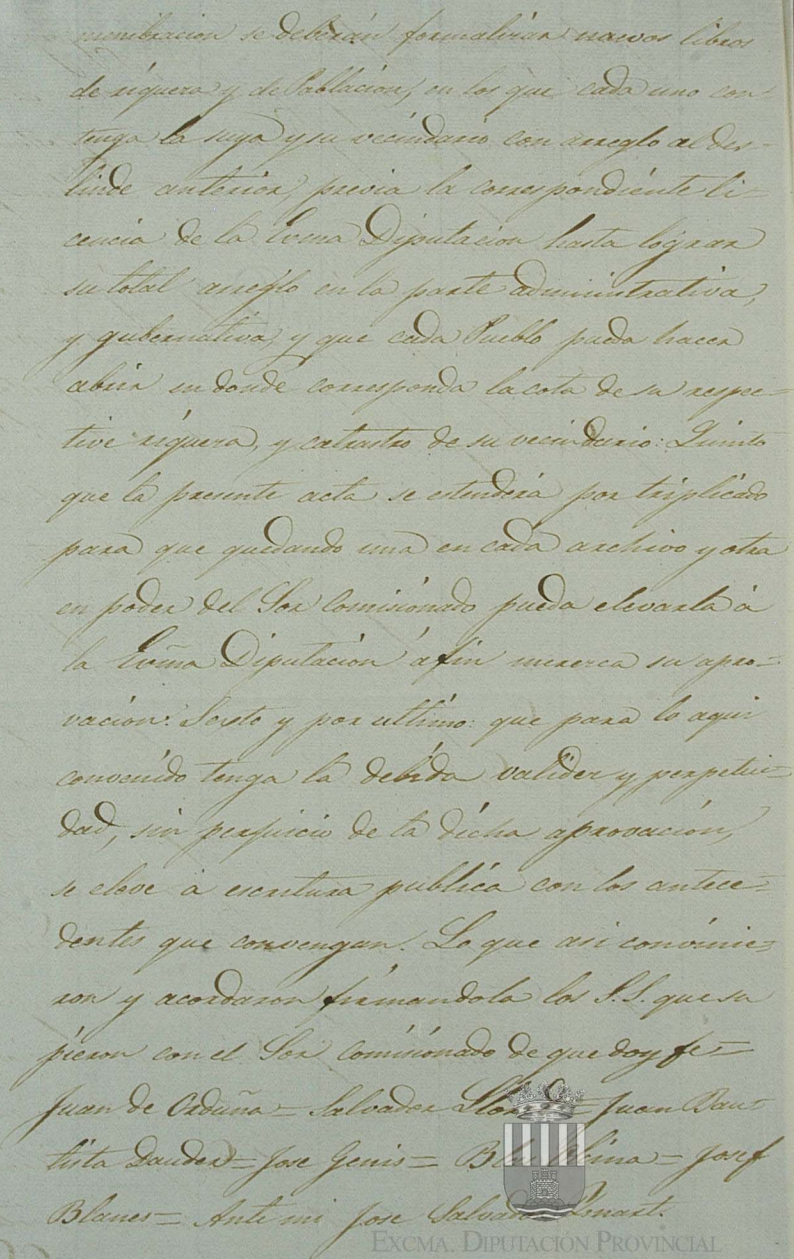 membracion se deberán formalizar nuevos libros
de riquera y de Poblacion, en los que cada uno con-
tenga la suya y su vecindario con arreglo al des-
linde anterior, previa la correspondiente li-
cencia de la Exma Diputacion hasta lograr
su total arreglo en la parte administrativa,
y gubernativa, y que cada Pueblo pueda hacer
abrir en donde corresponda la cota de su respec-
tive riquera, y catastro de su vecindario: Quinto
que la presente acta se entenderá por triplicado
para que quedando una en cada archivo y otra
en poder del Sor Comisionado pueda elevarla à
la Exma Diputación á fin merezca su apro-
vación: Sesto y por ultimo: que para lo aqui
convenido tenga la debida validez y perpetui-
dad, sin perjuicio de la dicha aprovación,
se eleve à escritura publica con los antece-
dentes que convengan. Lo que asi convinie-
ron y acordaron firmandola los S.S. que su
pieron con el Sor Comisionado de que doy fe=
Juan de Orduña= Salvador = Juan Bau-
tista Dauder= Jose Genis= = Josef
Blanes= Ante mi Jose Salvador
EXCMA. DIPUTACIÓN PROVINCIAL